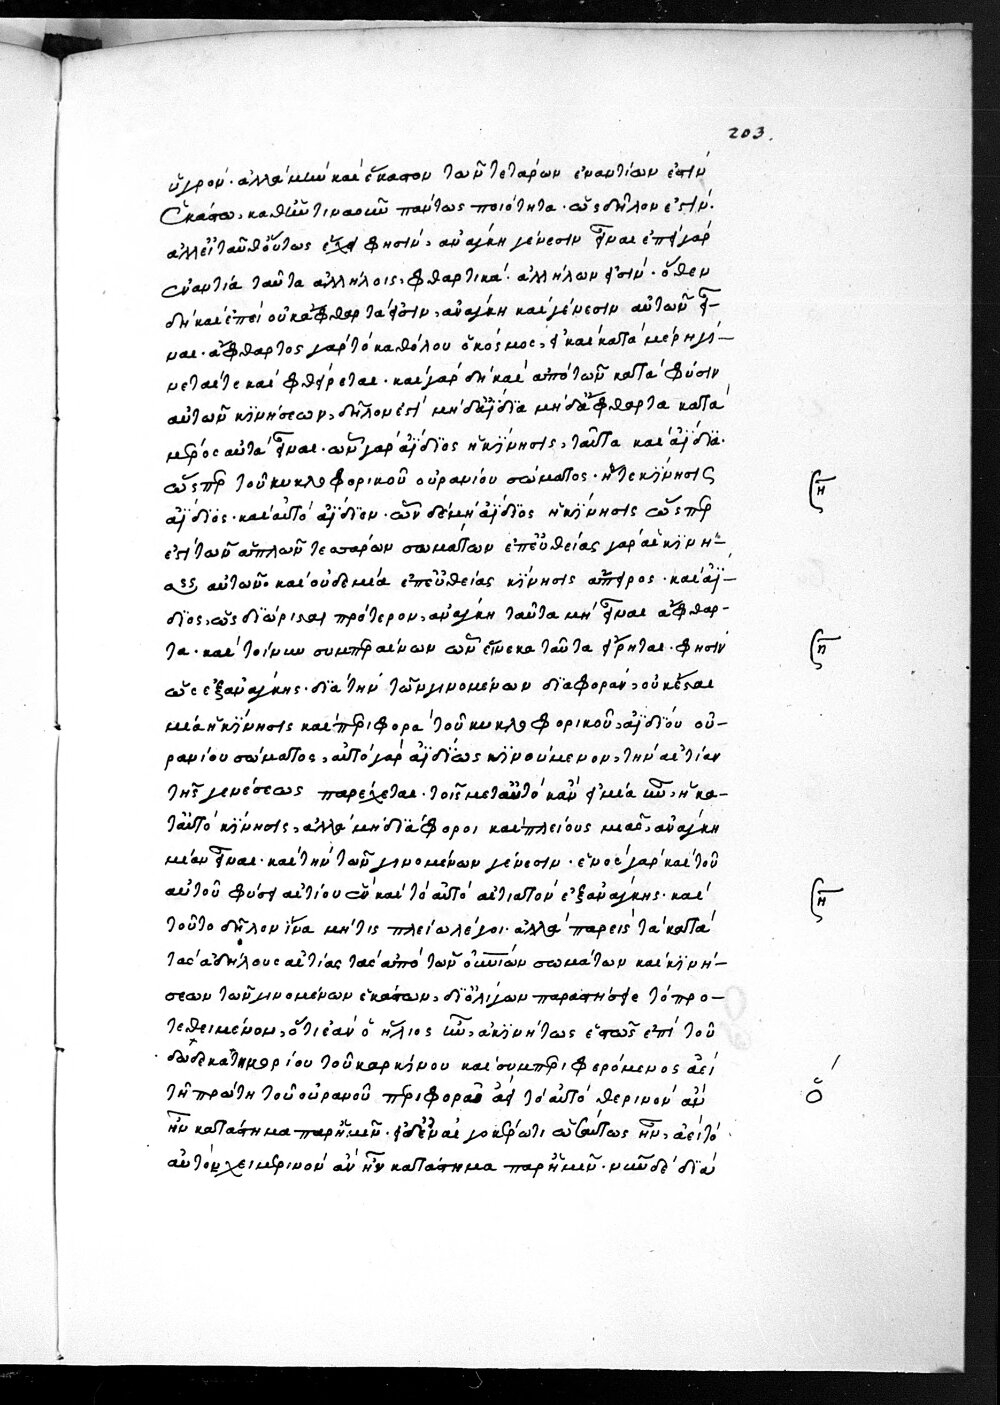 203.
ὑγρόν· ἀλλὰ μὴν καὶ ἕκαστον τῶν τετάρων ἐναντίων ἐστὶν
ἑκάστω, καθ' ἣν τιναοῦν πάντως ποιότητα· ὡς δῆλον ἐστίν.
ἀλλ' εἰ ταῦθ' οὕτως ἔχει φησὶν, ἀνάγκη γένεσιν εἶναι ἐπεὶ γὰρ
ἐναντία ταῦτα ἀλλήλοις, φθαρτικὰ ἀλλήλων εἰσίν· ὅθεν
δὴ καὶ ἐπεὶ οὐκ ἄφθαρτά εἰσιν, ἀνάγκη καὶ γένεσιν αὐτῶν εἶ-
ναι· ἄφθαρτος γὰρ τὸ καθόλου ὁ κόσμος, εἰ καὶ κατὰ μέρη γί-
νεταί τε καὶ φθείρεται· καὶ γὰρ δὴ καὶ ἀπὸ τῶν κατὰ φύσιν
αὐτῶν κινήσεων, δῆλον ἐστὶ μὴ δ' ἀΐδια μὴ δ' ἄφθαρτα κατὰ
μέρος αὐτὰ εἶναι· ὧν γὰρ ἀΐδιος ἡ κίνησις, ταῦτα καὶ ἀΐδια·
ὥσπερ τοῦ κυκλοφορικοῦ οὐρανίου σώματος· ἥ τε κίνησις
ἀΐδιος· καὶ αὐτὸ ἀΐδιον· ὧν δὲ μὴ ἀΐδιος ἡ κίνησις ὥσπερ
ἐπὶ τῶν ἁπλῶν τεσσάρων σωμάτων ἐπ' εὐθείας γὰρ αἱ κινή-
σεις αὐτῶν καὶ οὐδεμία ἐπ' εὐθείας κίνησις ἄπειρος· καὶ ἀΐ-
διος, ὡς διώρισται πρότερον, ἀνάγκη ταῦτα μὴ εἶναι ἄφθαρ-
τα· καὶ τοίνυν συμπεραίνων ὧν ἕνεκα ταῦτα εἴρηται· φησὶν
ὡς ἐξ ἀνάγκης· διὰ τὴν τῶν γινομένων διαφορὰν, οὐκ ἔσται
μία ἡ κίνησις καὶ περιφορὰ τοῦ κυκλοφορικοῦ, ἀϊδίου οὐ-
ρανίου σώματος, αὐτὸ γὰρ ἀϊδίως κινούμενον, τὴν αἰτίαν
τῆς γενέσεως παρέχεται· τοῖς μετ' αὐτὸ κἂν εἰ μία ἦν, ἡ κα-
τ' αὐτὸ κίνησις, ἀλλὰ μὴ διάφοροι καὶ πλείους μιᾶς, ἀνάγκη
μίαν εἶναι· καὶ τὴν τῶν γινομένων γένεσιν· ἑνὸς γὰρ καὶ τοῦ
αὐτοῦ φύσει αἰτίου ἓν καὶ τὸ αὐτὸ αἰτιατὸν ἐξ ἀνάγκης· καὶ
τοῦτο δῆλον ἵνα μή τις πλείω λέγοι· ἀλλὰ παρεὶς τὰ κατὰ
τὰς ἀδήλους αἰτίας τὰς ἀπὸ τῶν οὐρανίων σωμάτων καὶ κινή-
σεων τῶν γινομένων ἑκάστων, δι' ὀλίγων παραστήσει τὸ προ-
τεθειμένον, ὅτι ἐὰν ὁ ἥλιος ἦν, ἀκινήτως ἑστὼς ἐπὶ τοῦ
δωδεκατημορίου τοῦ καρκίνου καὶ συμπεριφερόμενος ἀεὶ
τῇ πρώτη τοῦ οὐρανοῦ περιφορᾶ ἀεὶ τὸ αὐτὸ θερινὸν ἂν
ἦν κατάστημα παρ' ἡμῖν· εἰ δ' ἐν αἰγοκέρωτι ὡσαύτως ἦν, ἀεὶ τὸ
αὐτὸν χειμερινὸν ἂν ἦν κατάστημα παρ' ἡμῖν· νῦν δὲ διὰ